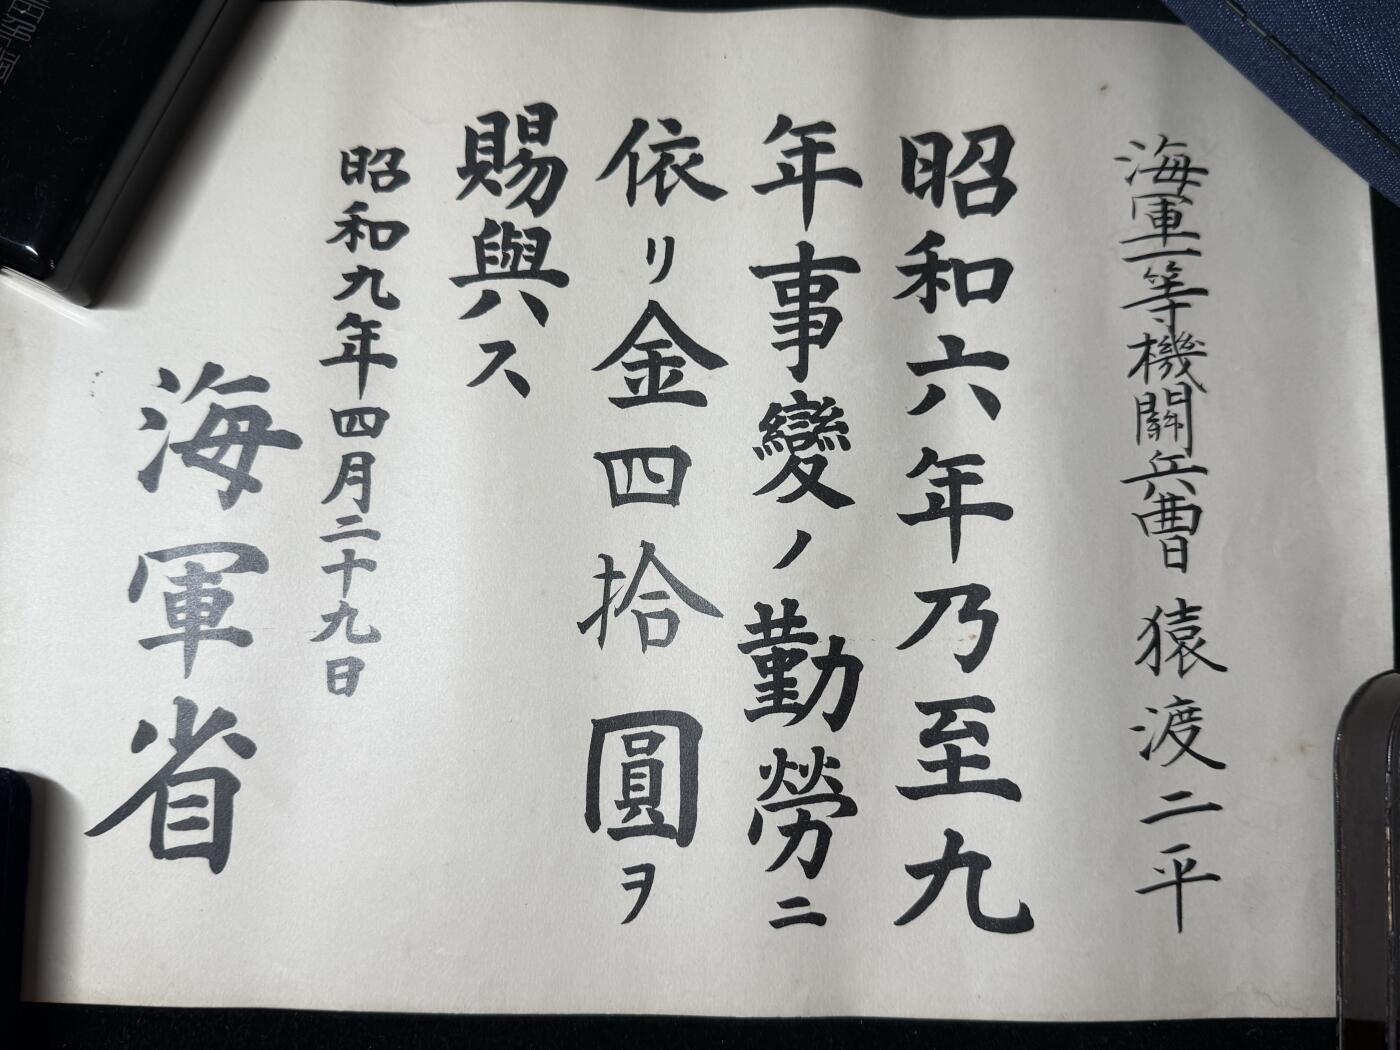 海軍一等機關兵曹 猿渡二平
昭和六年乃至九
年事變ノ勤勞ニ
依リ金四拾圓ヲ
賜與ス
昭和九年四月二十九日
海軍省